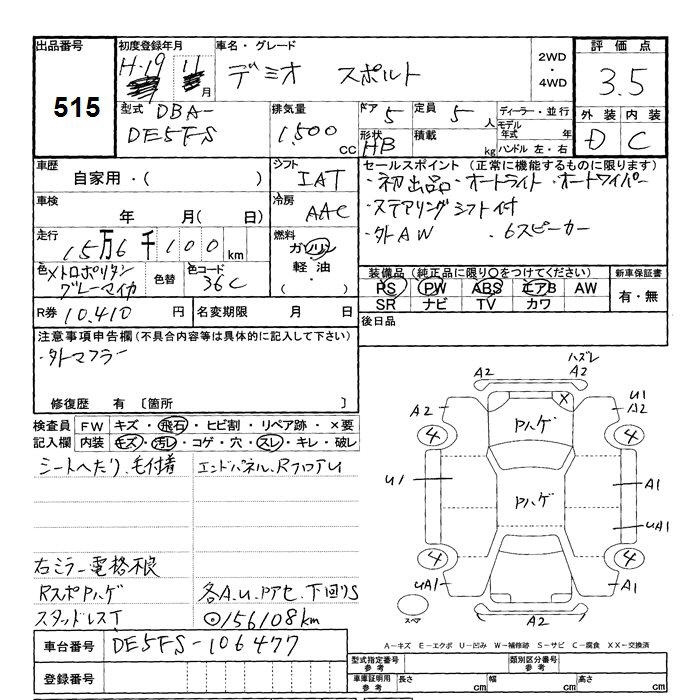 出品番号
515
初度登録年月
H.19 11月
車名・グレード
デミオ スポルト
2WD
・
4WD
評価点
3.5
外装 内装
D C
型式 DBA-
DE5FS
排気量
1,500 cc
ドア 5
定員 5 人
形状 HB
積載 kg
ディーラー・並行
モデル年式 年
ハンドル 左・右
車歴
自家用・( )
シフト
IAT
車検
年 月( 日)
冷房
AAC
走行
15万6千100km
燃料
ガソリン
軽油・
( )
色 メトロポリタン
グレーマイカ
色替
色コード
36C
R券 10,410 円
名変期限 月 日
セールスポイント(正常に機能するものに限ります)
・初出品・オートライト・オートワイパー
・ステアリングシフト付
・外AW ・6スピーカー
装備品(純正品に限り○をつけてください)
PS PW ABS エアB AW
SR ナビ TV カワ
新車保証書
有・無
後日品
注意事項申告欄(不具合内容等は具体的に記入して下さい)
・外マフラー
修復歴 有 〔箇所 〕
検査員記入欄
FW キズ・飛石・ヒビ割・リペア跡・×要
内装 キズ・汚レ・コゲ・穴・スレ・キレ・破レ
シートヘたり、毛付着
エンドパネル、RフロアU
右ミラー電格不良
RスポPハゲ
各A.U.Pアセ、下回りS
スタッドレスT
⊙156108km
車台番号 DE5FS-106477
登録番号
ハズレ
A2 A2
A2
U1
A2
X
Pハゲ
4 4
U1
A1
Pハゲ
UA1
4 4
UA1
A1
スペア
A2
A-キズ E-エクボ U-凹み W-補修跡 S-サビ C-腐食 XX-交換済
型式指定番号
参考
類別区分番号
参考
車庫証明用
参考
長さ cm 幅 cm 高さ cm